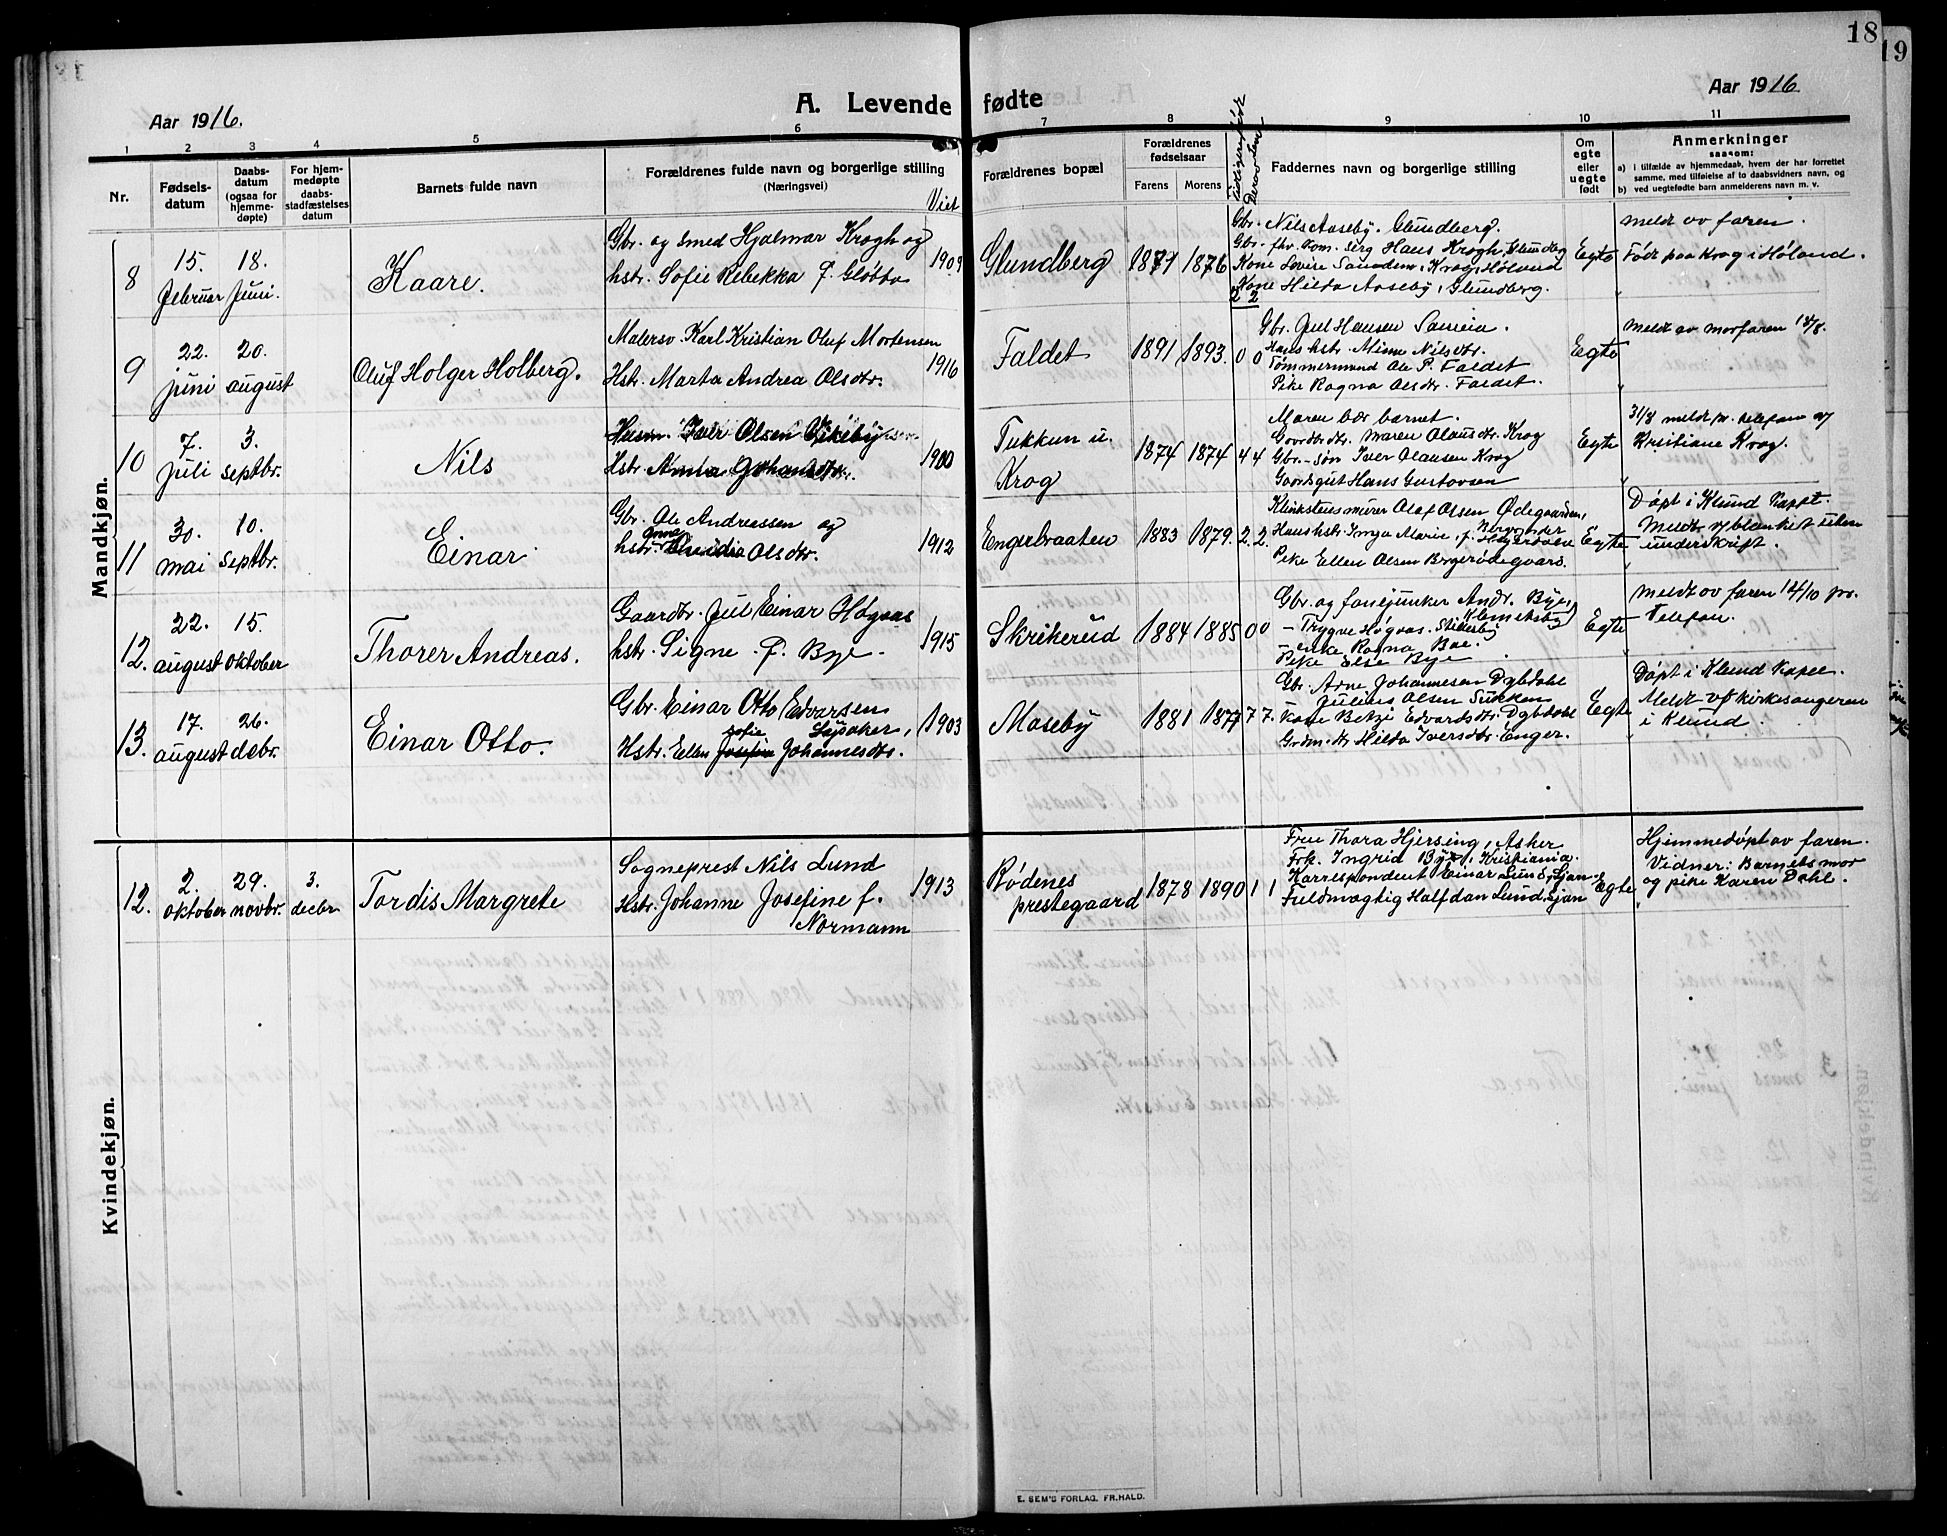 18
19
Aar 1916.
A. Levende fødte
Aar 1916.
1 2 3 4 5 6 7 8 9 10 11
Nr.
Fødsels-
datum
Daabs-
datum
(ogsaa for
hjemme-
døpte)
For hjem-
medøpte
daabs-
stadfæstelses
datum
Barnets fulde navn
Forældrenes fulde navn og borgerlige stilling
(Næringsvei)
Viet
Forældrenes bopæl
Forældrenes
fødselsaar
Farens Morens
Faddernes navn og borgerlige stilling
Om
egte
eller
uegte
født
Anmerkninger
saasom:
a) i tilfælde av hjemmedaab, hvem der har forrettet
samme, med tilføielse af to daabsvidners navn, og
b) ved uegtefødte barn anmelderens navn m. v.
Mandkjøn.
8
15.
Februar
18.
Juni.
Kaare.
Gbr. og smed Hjalmar Krogh og
hstr. Sofie Rebekka f. Gløtta
1909
Glundberg
1871 1876
Gbr. Nils Aaseby. Glundberg.
Gbr. fhv. kom. serg Hans Krogh, Glundbg
Kone Lovise Sanddem, Krog, Høland
Kone Hilda Aaseby, Glundberg.
2 2
Egte
Meldt av faren.
Født paa Krog i Høland.
9
22.
juni
20.
august
Oluf Holger Holberg.
Malersv. Karl Kristian Oluf Mortensen
Hstr. Marta Andrea Olsdtr.
1916
Faldet
1891 1893. 0 0
Gbr. Jul Hansen
Hans hstr. Mina Nilsdtr.
Tømmermand Ole P. Faldet
Pike Ragna Olsdtr. Faldet.
Egte
Meldt av morfaren 18/8.
10
7.
juli
3.
septbr.
Nils
Husm. Iver Olsen Vikeby
Hstr. Anna Johansdtr.
1900
Tukkun u.
Krog
1874 1874 4 4
Maren bær barnet.
Gaardbr.dtr. Maren Olausdtr. Krog
Gbr.-søn Iver Olaussen Krog
Gaardsgut Hans Gustavsen
Egte
31/8 meldt pr. telefon af
Kristiane Krog.
11
30.
mai
10.
Septbr.
Einar
Gbr. Ole Andreassen og
hstr. Olsdtr.
1912
Engerbraaten
1883 1879. 2. 2.
Olaf Olsen Ødegaarden,
Hans hstr. Inga Marie, f.
Pike Ellen Olsen
Egte
Døpt i Klund Kapt.
Meldt v/blanket uten
underskrift.
12.
22.
august
15.
oktober
Thorer Andreas.
Gaardbr. Jul Einar Høgaas
hstr. Signe f. Bye.
1915
Skrikerud
1884 1885 0 0
Gbr. og fanejunker Andr. Bye,
Klemetsby
- Trygve Høgaas.
enke Ragna Boe.
Pike Else Bye
Egte
Meldt av faren 14/10 pr.
Telefon.
13.
17.
august
26.
decbr.
Einar Otto.
Gbr. Einar Otto Edvarsen
Lysaker,
sofie
Hstr. Ellen Josefine Johannesdtr.
1903
Moseby
1881 1877 7 7.
Gbr. Arne Johannesen Dybdahl
Julius Olsen Sukken
Kone Betzi Edvardsdtr. Dybdahl
Grdm. dtr Hilda Iversdtr. Enger.
Egte
Døpt i Klund Kapel.
Meldt v/ kirkesangeren
i Klund.
Kvindekjøn.
12.
2.
oktober
29.
novbr.
3.
decbr
Tordis Margrete
Sogneprest Nils Lund
Hstr. Johanne Josefine f.
Normann
1913
Rødenes
prestegaard
1878 1890 1 1
Fru Thora Hjersing, Asker
Frk. Ingrid Bye, Kristiania.
Korrespondent Einar Lund,
Fuldmægtig Halfdan Lund,
Egte
Hjemmedøpt av faren.
Vidner: Barnets mor
og pike Karen Dahl.
E. SEM'S FORLAG, FR.HALD.